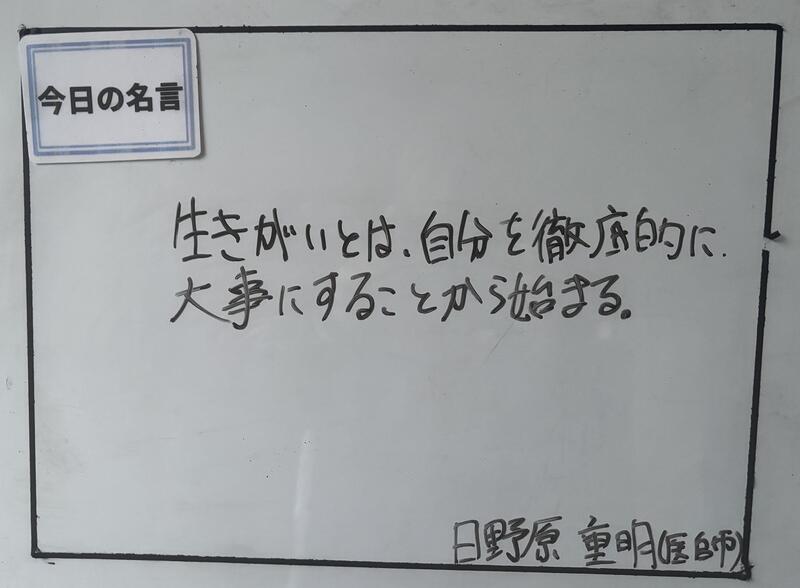 今日の名言
生きがいとは、自分を徹底的に
大事にすることから始まる。
日野原 重明(医師)